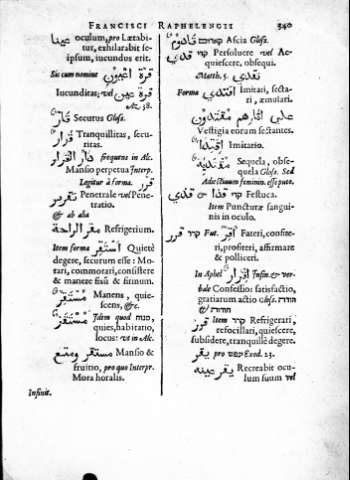 FRANCISCI RAPHELENGII 540
عينا oculum, pro Lætabi-
tur, exhilarabit se-
ipsum, iucundus erit.
Sic cum nomine قرة اعيون
Iucunditas; vel قرة عين
Ac. 38.
قار Securus Gloss.
قرار Tranquillitas, secu-
ritas.
دار القرار frequens in Alc.
Mansio perpetua Interp.
Legitur à forma. قرر
تقرير Penetrale vel Pene-
tratio.
& ab alia
مقر الراحة Refrigerium.
Item forma استقر Quietè
degere, securum esse: Mo-
rari, commorari, consistere
& manere fixū & firmum.
مستقر Manens, quie-
scens, &c.
مستقر Idem quod מנוח
quies, habitatio,
locus: vt in Alc.
مستقر ومتع Mansio &
fruitio, pro quo Interpr.
Mora horalis.
Infinit.
قادوم קר Ascia Gloss.
قدي קדי Persoluere vel Ac-
quiescere, obsequi.
Matth. 5. تقدي
Forma اقتدي Imitari, secta-
ri, æmulari.
علي اثارهم مقتدون
Vestigia eorum sectantes.
اقتدا Imitatio.
مقتدية Sequela, obse-
quela Gloss. Sed
Adiectiuum feminin. esse pute.
قدي & قدا קדי Festuca.
Item Puncturæ sangui-
nis in oculo.
קר קרר Fut. اقر Fateri, confite-
ri, profiteri, affirmare
& polliceri.
In Aphel اقرار Infin. & ver-
bale Confessio: satisfactio,
gratiarum actio Gloss. תודות
& תודה
قرر Item קרר Refrigerari,
refocillari, quiescere,
subsidere, tranquillè degere.
يقر pro Exod. 23.
يقر عينه Recreabit ocu-
lum suum vel